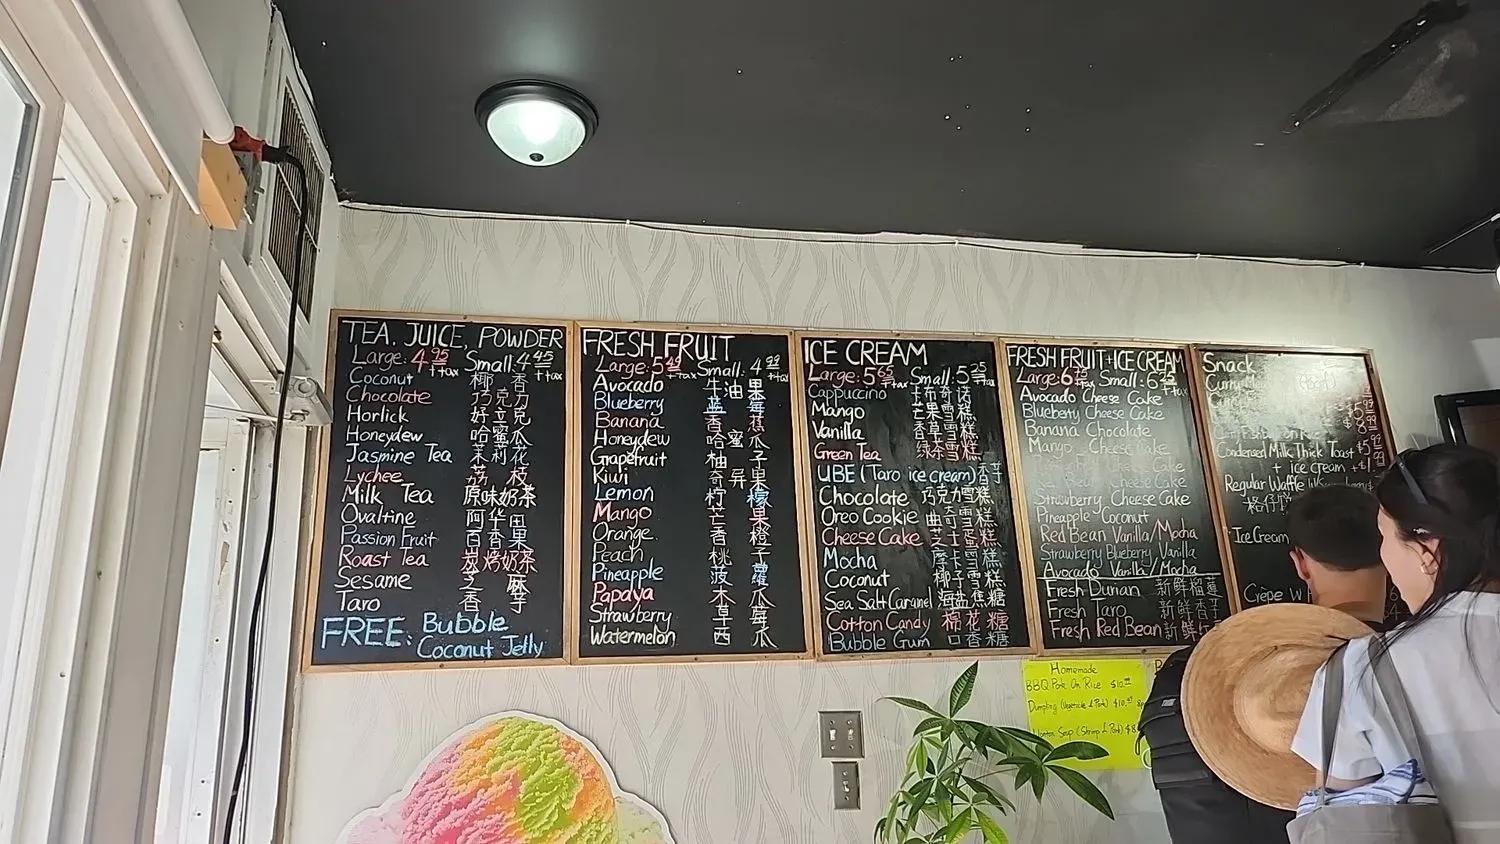 TEA, JUICE, POWDER
Large: 4.95 +tax Small: 4.45 +tax
Coconut 椰香
Chocolate 巧克力
Horlick 好立克
Honeydew 哈蜜瓜
Jasmine Tea 茉莉花
Lychee 荔枝
Milk Tea 原味奶茶
Ovaltine 阿华田
Passion Fruit 百香果
Roast Tea 炭烤奶茶
Sesame 芝麻
Taro 香芋
FREE: Bubble
Coconut Jelly
FRESH FRUIT
Large: 5.49 +tax Small: 4.99 +tax
Avocado 牛油果
Blueberry 蓝莓
Banana 香蕉
Honeydew 哈蜜瓜
Grapefruit 柚子
Kiwi 奇异果
Lemon 柠檬
Mango 芒果
Orange 香橙
Peach 桃子
Pineapple 菠蘿
Papaya 木瓜
Strawberry 草莓
Watermelon 西瓜
ICE CREAM
Large: 5.65 +tax Small: 5.25 +tax
Cappuccino 卡布奇诺
Mango 芒果雪糕
Vanilla 香草雪糕
Green Tea 绿茶雪糕
UBE (Taro ice cream) 香芋
Chocolate 巧克力雪糕
Oreo Cookie 曲奇雪糕
Cheese Cake 芝士蛋糕
Mocha 摩卡雪糕
Coconut 椰子雪糕
Sea Salt Caramel 海盐焦糖
Cotton Candy 棉花糖
Bubble Gum 口香糖
FRESH FRUIT+ICE CREAM
Large: +tax Small: +tax
Avocado Cheese Cake
Blueberry Cheese Cake
Banana Chocolate
Mango Cheese Cake
Cheese Cake
Cheese Cake
Strawberry Cheese Cake
Pineapple Coconut
Red Bean Vanilla/Mocha
Strawberry Blueberry Vanilla
Avocado Vanilla/Mocha
Fresh Durian 新鲜榴莲
Fresh Taro 新鲜香芋
Fresh Red Bean 新鲜
Snack
Curry
Condensed Milk Thick Toast
+ ice cream
Regular Waffle
Ice Cream
Crêpe
Homemade
BBQ Pork On Rice
Dumpling (Vegetable & Pork)
Soup (Shrimp & Pork)